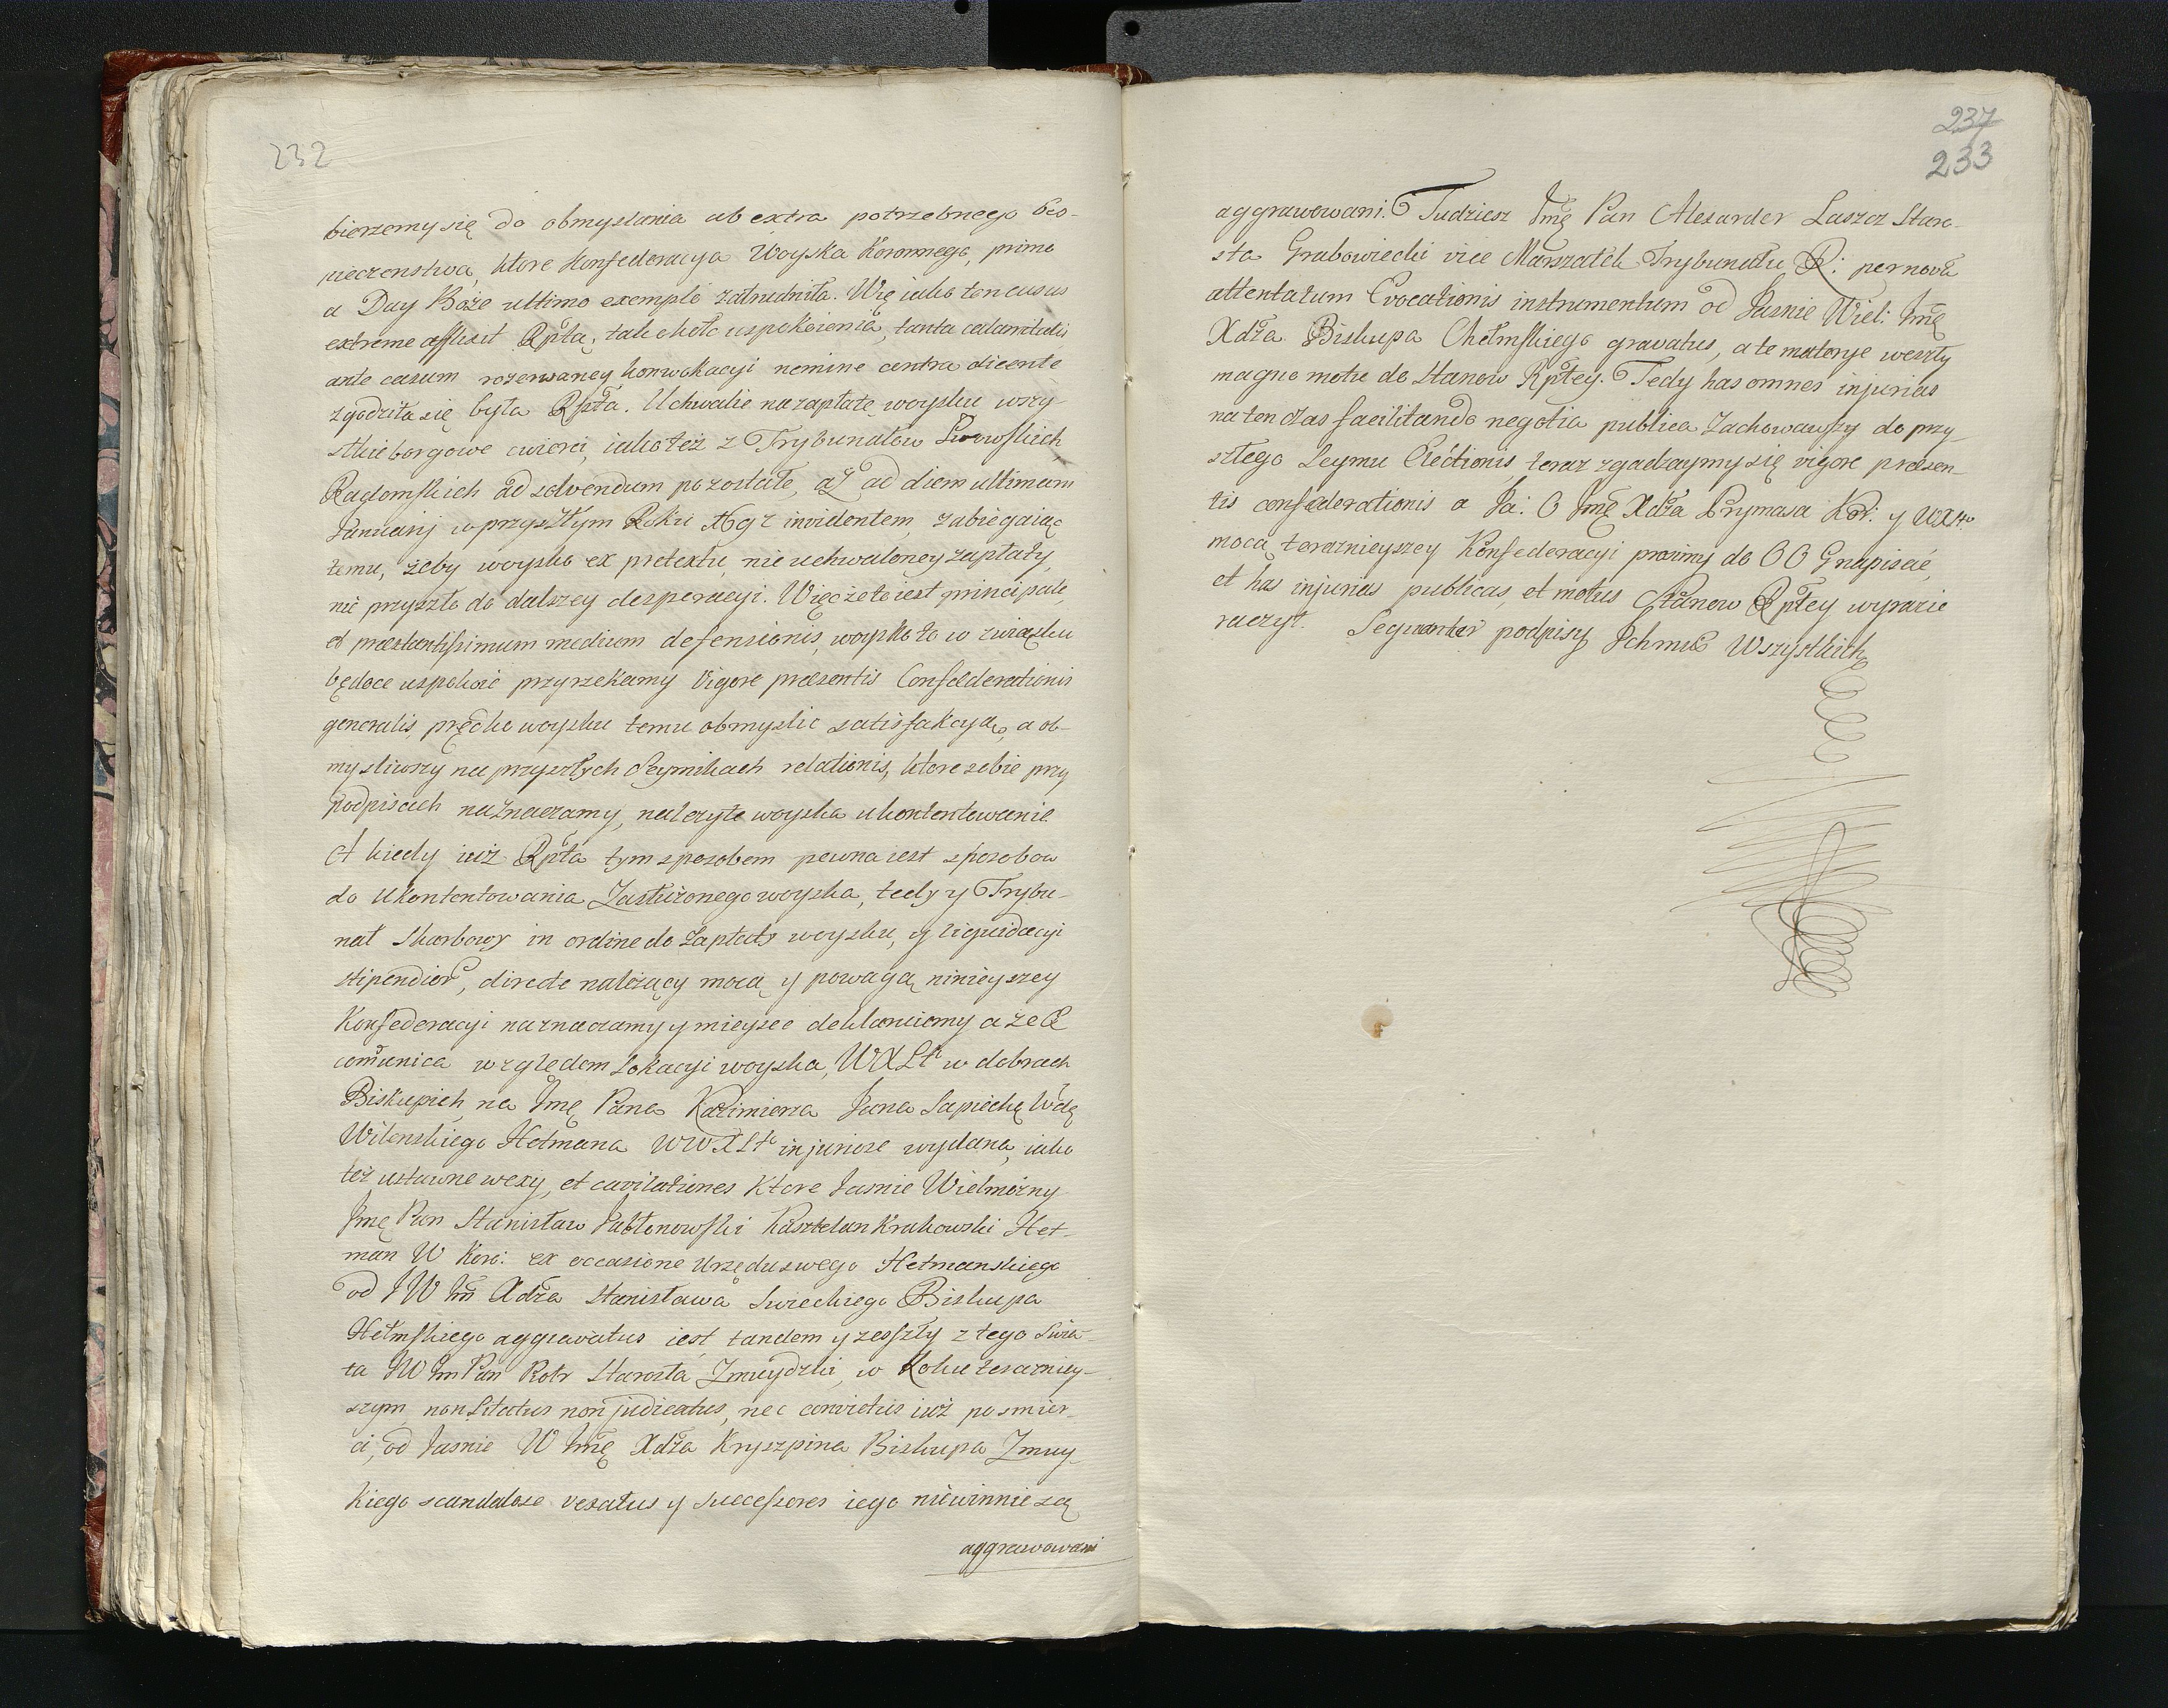 232
bierzemy się do obmyslania ab extra potrzebnego bes-
pieczenstwa, ktore Konfederacya Woyska Koronnego, primo
a Day Boże ultimo exemplo zatrudniła. Wię iako ten casus
extreme afflixit Rptą, tak około uspokoienia, tanta calamitatis
ante casum rozerwaney konwokacyi nemine contra dicente
zgodziła się była Rpta. Uchwalic na zapłatę woysku wszy-
stkie borgowe cwierci, iako też z Trybunałow Lwowskich
Radomskich ad solvendum pozostałe, aż ad diem ultimam
Januarij w przyszłym Roku 1697 incidentem, zabiegaiąc
temu, żeby woysko ex pretextu, nie uchwaloney zapłaty,
nie przyszło do dalszey desperacyi. Więc że to iest principale,
et praestantissimum medium defensionis, woysko to w związku
będące uspokoić przyrzekamy Vigore praesentis Confaederationis
generalis, prędko woysku temu obmyslic satisfakcyą, a ob-
mysliwszy na przyszłych Seymikach relationis, ktore sobie przy
podpisach naznaczamy, należyte woyska ukontentowanie
A kiedy iuż Rpta tym sposobem pewna iest sposobow
do Ukontentowania Zasłużonego woyska, tedy y Trybu-
nał Skarbowy in ordine do zapłaty woysku, y liquidacyi
stipendior, directe należący mocą y powagą ninieyszey
Konfederacyi naznaczamy y mieysce deklaruiemy a że Ex
comunica względem Lokacyi woyska, WXLt w dobrach
Biskupich, na Jmę Pana Kazimierza Jana Sapiehę Wdę
Wilenskiego Hetmana WWXLt injuriose wydana, iako
też ustawne wexy, et cavilationes Ktore Jasnie Wielmożny
Jmę Pan Stanisław Jabłonowski Kasztelan Krakowski Het-
man W Koro: ex occasione Urzędu swego Hetmanskiego
od JW Jm Xdza Stanisława Swieckiego Biskupa
Hełmskiego aggravatus iest, tandem y zeszły z tego świa-
ta JW Jm Pan Kotr Starosta Zmuydzki, w Roku teraźniey-
szym, non Citatus non judicatus, nec convictus iuż po smier-
ci, od Jasnie W Jmę Xdza Kryszpina Biskupa Zmuy-
kiego scandalose vexatus y Successores iego niewinnie są
aggrawowani
237
233
aggrawowani. Tudziesz Jmę Pan Alexander Laszcz Staro-
sta Grabowiecki vice Marszałek Trybunału R: per nova
attentatum Evocationis instrumentum od Jasnie Wiel: Jmę
Xdza Biskupa Chełmskiego gravatus, a te materye weszły
magno motu do Stanow Rptey. Tedy has omnes injurias
na ten czas facilitando negotia publica zachowawszy do przy-
szłego Seymu Electionis, teraz zgadzaymy się vigore praesen-
tis confaederationis a Ja: O Jmę Xdza Prymasa Kor: y WXLto
mocą terazniejszey Konfederacyi prosimy do OO Gnapisać,
et has injurias publicas, et motus Stanow Rptey wyrazic
raczył. Sequuntur podpisy Ichmw Wszystkich